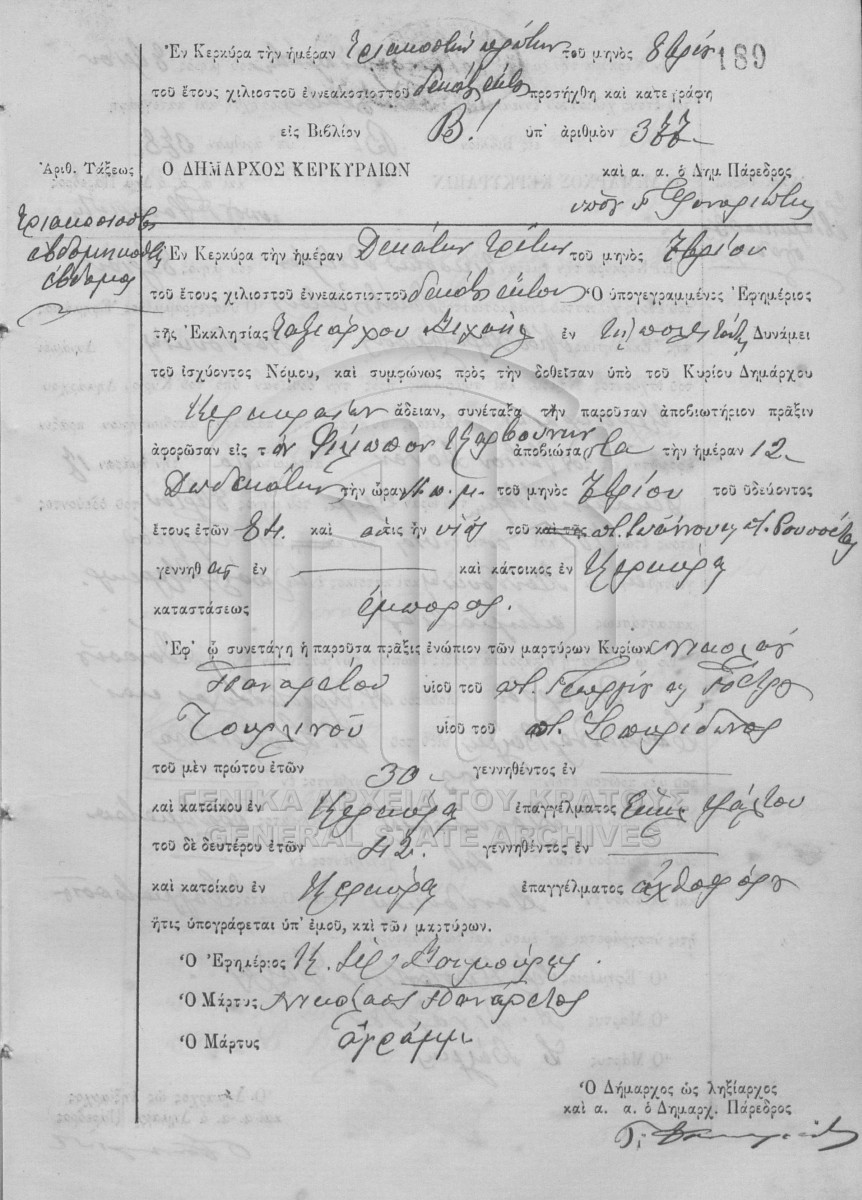 189
Ἐν Κερκύρα τὴν ἡμέραν τριακοστὴν πρώτην τοῦ μηνὸς 8βρίου
τοῦ ἔτους χιλιοστοῦ ἐννεακοσιοστοῦ δεκάτου ἕκτου προσήχθη καὶ κατεγράφη
εἰς Βιβλίον Β! ὑπ' ἀριθμὸν 377
Ἀριθ. Τάξεως Ο ΔΗΜΑΡΧΟΣ ΚΕΡΚΥΡΑΙΩΝ καὶ α. α. ὁ Δημ. Πάρεδρος
τριακοσιοστὸς
ἑβδομηκοστὸς
ἕβδομος
Ἐν Κερκύρα τὴν ἡμέραν Δεκάτην τρίτην τοῦ μηνὸς 7βρίου
τοῦ ἔτους χιλιοστοῦ ἐννεακοσιοστοῦ δεκάτου ἕκτου Ὁ ὑπογεγραμμένος Ἐφημέριος
τῆς Ἐκκλησίας Ταξιάρχου Μιχαὴλ ἐν τῇ πόλει Δυνάμει
τοῦ ἰσχύοντος Νόμου, καὶ συμφώνως πρὸς τὴν δοθεῖσαν ὑπὸ τοῦ Κυρίου Δημάρχου
Κερκυραίων ἄδειαν, συνέταξα τὴν παροῦσαν ἀποβιωτήριον πρᾶξιν
ἀφορῶσαν εἰς τὸν Φίλιππον ἀποβιώσαντα τὴν ἡμέραν 12
Δωδεκάτην τὴν ὥραν π. μ. τοῦ μηνὸς 7βρίου τοῦ ὁδεύοντος
ἔτους ἐτῶν 84. καὶ ὅστις ἦν υἱὸς τοῦ καὶ τῆς ποτ. Ἰωάννου
γεννηθεὶς ἐν καὶ κάτοικος ἐν Κερκύρᾳ
καταστάσεως ἔμπορος.
Ἐφ' ᾧ συνετάγη ἡ παροῦσα πρᾶξις ἐνώπιον τῶν μαρτύρων Κυρίων Νικολάου
Παναρέτου υἱοῦ τοῦ ποτ. Γεωργίου καὶ Πέτρου
υἱοῦ τοῦ ποτ. Σπυρίδωνος
τοῦ μὲν πρώτου ἐτῶν 30 γεννηθέντος ἐν
καὶ κατοίκου ἐν Κερκύρᾳ ἐπαγγέλματος
ΓΕΝΙΚΑ ΑΡΧΕΙΑ ΤΟΥ ΚΡΑΤΟΥΣ
GENERAL STATE ARCHIVES
τοῦ δὲ δευτέρου ἐτῶν 42. γεννηθέντος ἐν
καὶ κατοίκου ἐν Κερκύρᾳ ἐπαγγέλματος ἀχθοφόρου
ἥτις ὑπογράφεται ὑπ' ἐμοῦ, καὶ τῶν μαρτύρων.
Ὁ Ἐφημέριος
Ὁ Μάρτυς Νικόλαος Πανάρετος
Ὁ Μάρτυς ἀγράμμ
Ὁ Δήμαρχος ὡς ληξίαρχος
καὶ α. α. ὁ Δημαρχ. Πάρεδρος